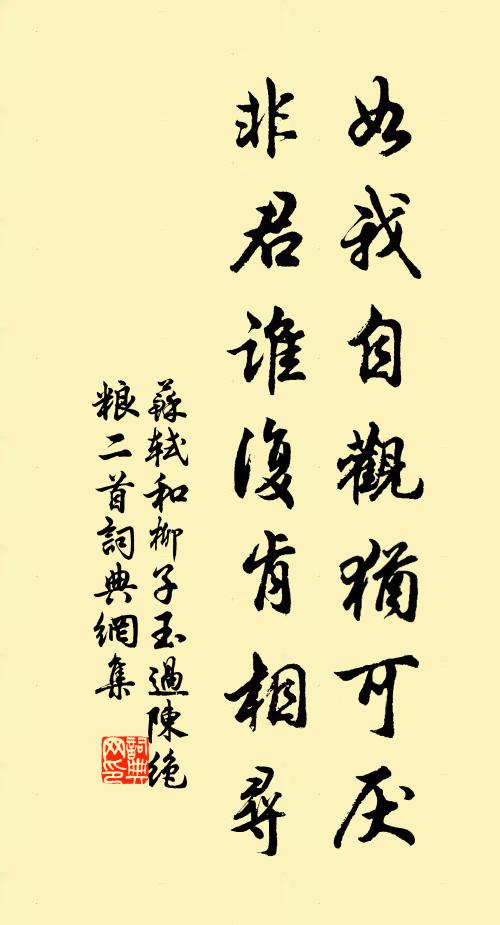 如我自觀猶可厌
非君誰復肯相尋
蘇軾和柳子玉過陳絕
粮二首詞典網集
詞典
网印